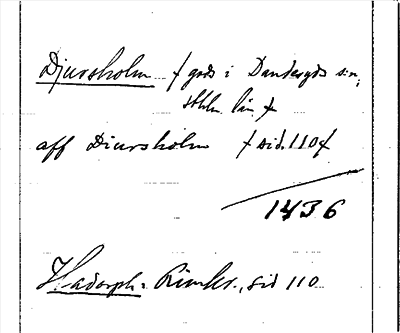 Djursholm ƒ gods i Danderyds s:n,
sthlm län ƒ
aff Diursholm ƒ sid. 110 ƒ
1436
Hadorph: Rimkr., sid 110